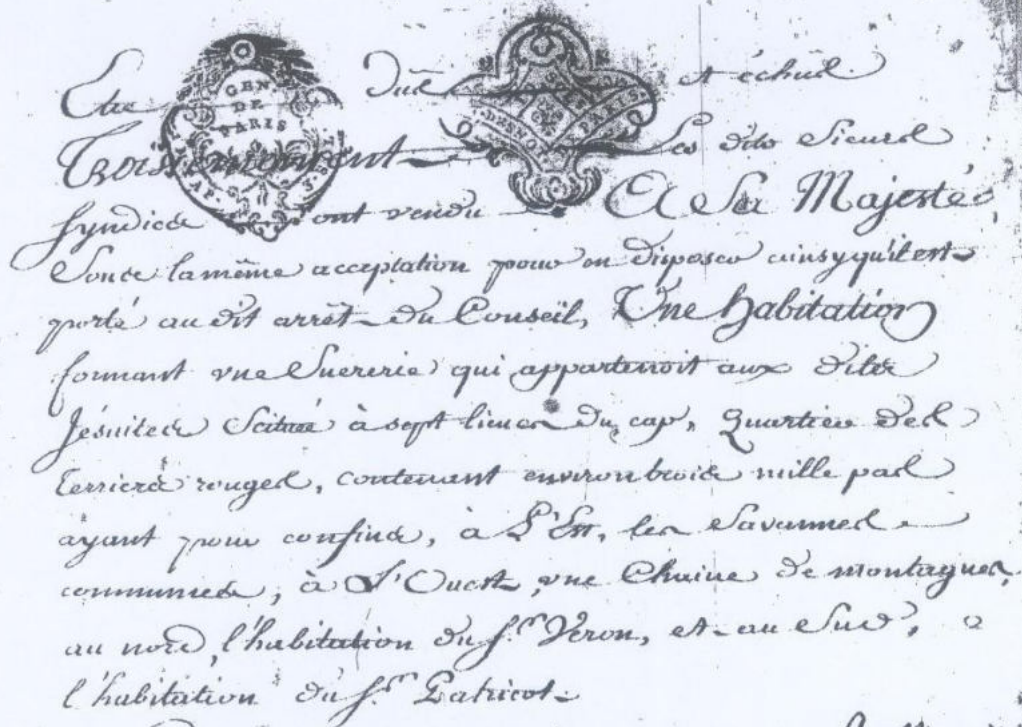 Etre dûë et échuë.
GEN.
DE
PARIS
Troisiemement Les dits Sieurs
DES NOT. PARIS.
Syndics ont vendu A Sa Majesté,
Sous la même acceptation pour en disposer ainsy qu'il est
porté au dit arrêt du Conseil, Une habitation
formant une Sucrerie qui appartenoit aux dits
Jésuites Scituée à sept lieues du cap, Quartier des
terriers rouges, contenant environ trois mille pas
ayant pour confins, à L'Est, les Savannes
communes, à L'Ouest, une Chaine de montagnes,
au nord, l'habitation du S.r Veron, et au Sud, a
l'habitation du S.r Patricot.